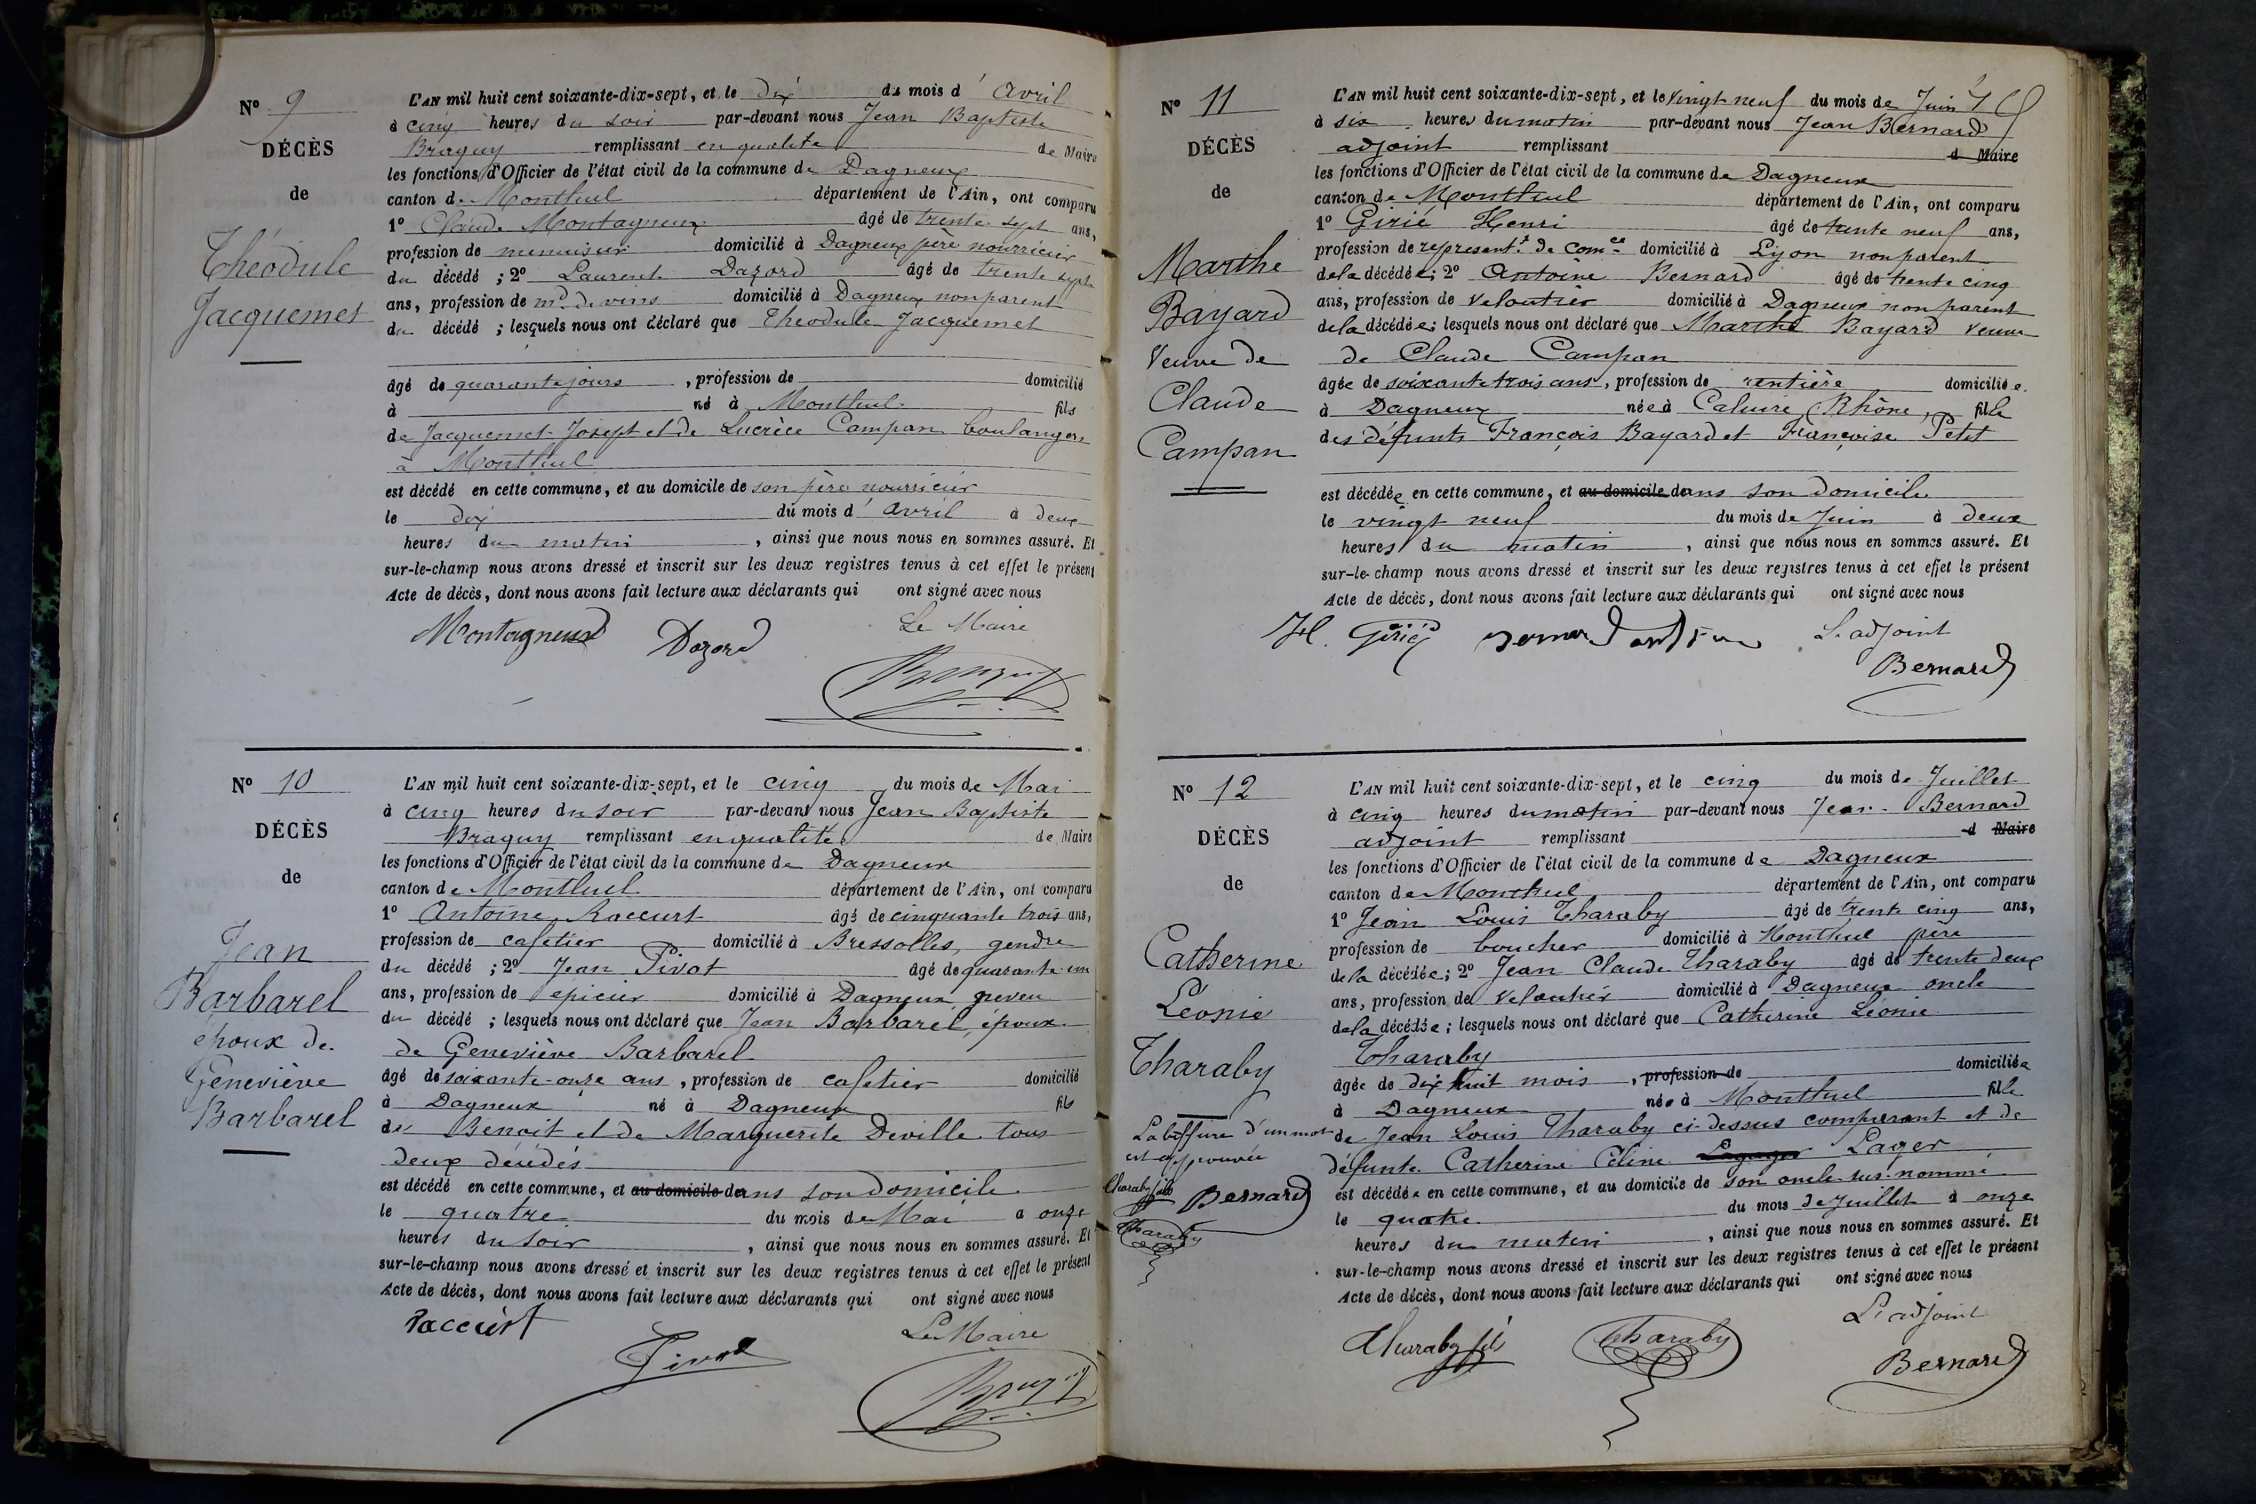 N° 9
DÉCÈS
de
Théodule
Jacquemet
L'AN mil huit cent soixante-dix-sept, et le dix du mois d'Avril
à cinq heures du soir par-devant nous Jean Baptiste
Braguy remplissant en qualité de Maire
les fonctions d'Officier de l'état civil de la commune de Dagneux
canton de Montluel département de l'Ain, ont comparu
1° Claude Montagneux âgé de trente sept ans,
profession de menuisier domicilié à Dagneux père nourricier
du décédé ; 2° Laurent Dazord âgé de trente sept
ans, profession de md de vins domicilié à Dagneux non parent
du décédé ; lesquels nous ont déclaré que Théodule Jacquemet
âgé de quarante jours, profession de domicilié
à né à Montluel fils
de Jacquemet Joseph et de Lucrèce Campan boulangers
à Montluel
est décédé en cette commune, et au domicile de son père nourricier
le dix du mois d'avril à deux
heures du matin, ainsi que nous nous en sommes assuré. Et
sur-le-champ nous avons dressé et inscrit sur les deux registres tenus à cet effet le présent
Acte de décès, dont nous avons fait lecture aux déclarants qui ont signé avec nous
Le Maire
Montagneux Dazord
N° 10
DÉCÈS
de
Jean
Barbarel
époux de
Geneviève
Barbarel
L'AN mil huit cent soixante-dix-sept, et le cinq du mois de Mai
à cinq heures du soir par-devant nous Jean Baptiste
Braguy remplissant en qualité de Maire
les fonctions d'Officier de l'état civil de la commune de Dagneux
canton de Montluel département de l'Ain, ont comparu
1° Antoine Raccurt âgé de cinquante trois ans,
profession de cafetier domicilié à Bressolles, gendre
du décédé ; 2° Jean Pivot âgé de quarante un
ans, profession de épicier domicilié à Dagneux neveu
du décédé ; lesquels nous ont déclaré que Jean Barbarel, époux
de Geneviève Barbarel
âgé de soixante-onze ans, profession de cafetier domicilié
à Dagneux né à Dagneux fils
de Benoit et de Marguerite Deville tous
deux décédés
est décédé en cette commune, et au domicile dans son domicile
le quatre du mois de Mai à onze
heures du soir, ainsi que nous nous en sommes assuré. Et
sur-le-champ nous avons dressé et inscrit sur les deux registres tenus à cet effet le présent
Acte de décès, dont nous avons fait lecture aux déclarants qui ont signé avec nous
Raccurt Pivot Le Maire
N° 11
DÉCÈS
de
Marthe
Bayard
Veuve de
Claude
Campan
L'AN mil huit cent soixante-dix-sept, et le vingt neuf du mois de Juin
à six heures du matin par-devant nous Jean Bernard
adjoint remplissant d Maire
les fonctions d'Officier de l'état civil de la commune de Dagneux
canton de Montluel département de l'Ain, ont comparu
1° Girié Henri âgé de trente neuf ans,
profession de représent.t de com.ce domicilié à Lyon non parent
de la décédée ; 2° Antoine Bernard âgé de trente cinq
ans, profession de veloutier domicilié à Dagneux non parent
de la décédée ; lesquels nous ont déclaré que Marthe Bayard veuve
de Claude Campan
âgée de soixante trois ans, profession de rentière domiciliée
à Dagneux née à Caluire, Rhône, fille
des défunts François Bayard et Françoise Petit
est décédée en cette commune, et au domicile dans son domicile
le vingt neuf du mois de Juin à deux
heures du matin, ainsi que nous nous en sommes assuré. Et
sur-le-champ nous avons dressé et inscrit sur les deux registres tenus à cet effet le présent
Acte de décès, dont nous avons fait lecture aux déclarants qui ont signé avec nous
H. Girié Bernard antoine L'adjoint
Bernard
N° 12
DÉCÈS
de
Catherine
Léonie
Tharaby
La biffure d'un mot
est approuvée
Tharaby fils Bernard
Tharaby
L'AN mil huit cent soixante-dix-sept, et le cinq du mois de Juillet
à cinq heures du matin par-devant nous Jean Bernard
adjoint remplissant d Maire
les fonctions d'Officier de l'état civil de la commune de Dagneux
canton de Montluel département de l'Ain, ont comparu
1° Jean Louis Tharaby âgé de trente cinq ans,
profession de boucher domicilié à Montluel père
de la décédée ; 2° Jean Claude Tharaby âgé de trente deux
ans, profession de veloutier domicilié à Dagneux oncle
de la décédée ; lesquels nous ont déclaré que Catherine Léonie
Tharaby
âgée de dix huit mois, profession de domiciliée
à Dagneux née à Montluel fille
de Jean Louis Tharaby ci-dessus comparant et de
défunte Catherine Céline Lager
est décédée en cette commune, et au domicile de son oncle sus-nommé
le quatre du mois de Juillet à onze
heures du matin, ainsi que nous nous en sommes assuré. Et
sur-le-champ nous avons dressé et inscrit sur les deux registres tenus à cet effet le présent
Acte de décès, dont nous avons fait lecture aux déclarants qui ont signé avec nous
L'adjoint
Tharaby fils Tharaby Bernard